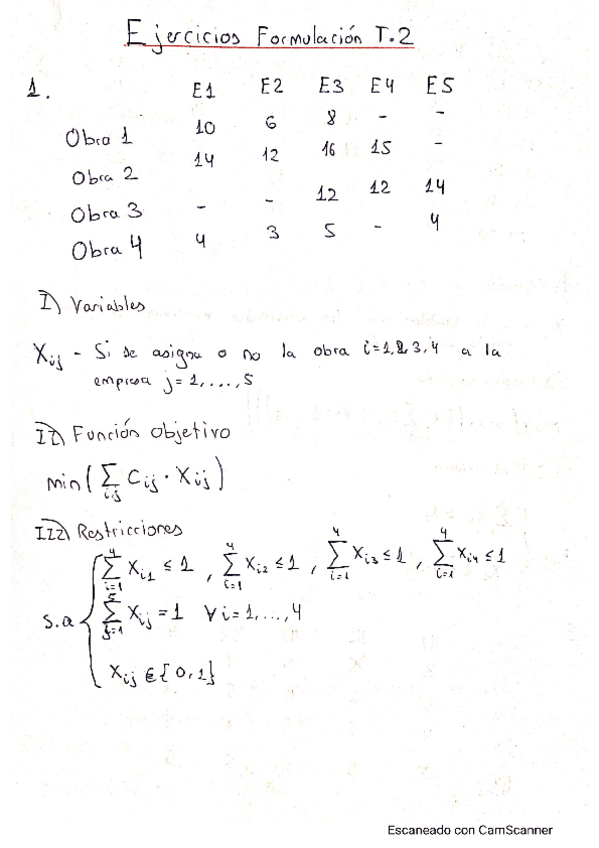 Ejercicios Formulación T.2
1. E1 E2 E3 E4 E5
Obra 1 10 6 8 - -
Obra 2 14 12 16 15 -
Obra 3 - - 12 12 14
Obra 4 4 3 5 - 4
I) Variables
Xij - Si se asigna o no la obra i=1,2,3,4 a la
empresa j=1,...,5
II) Función objetivo
min(∑i,j Cij · Xij)
III) Restricciones
s.a { ∑_{i=1}^{4} Xi1 ≤ 1 , ∑_{i=1}^{4} Xi2 ≤ 1 , ∑_{i=1}^{4} Xi3 ≤ 1 , ∑_{i=1}^{4} Xi4 ≤ 1
∑_{j=1}^{5} Xij = 1 ∀i=1,...,4
Xij ∈ {0,1}
Escaneado con CamScanner